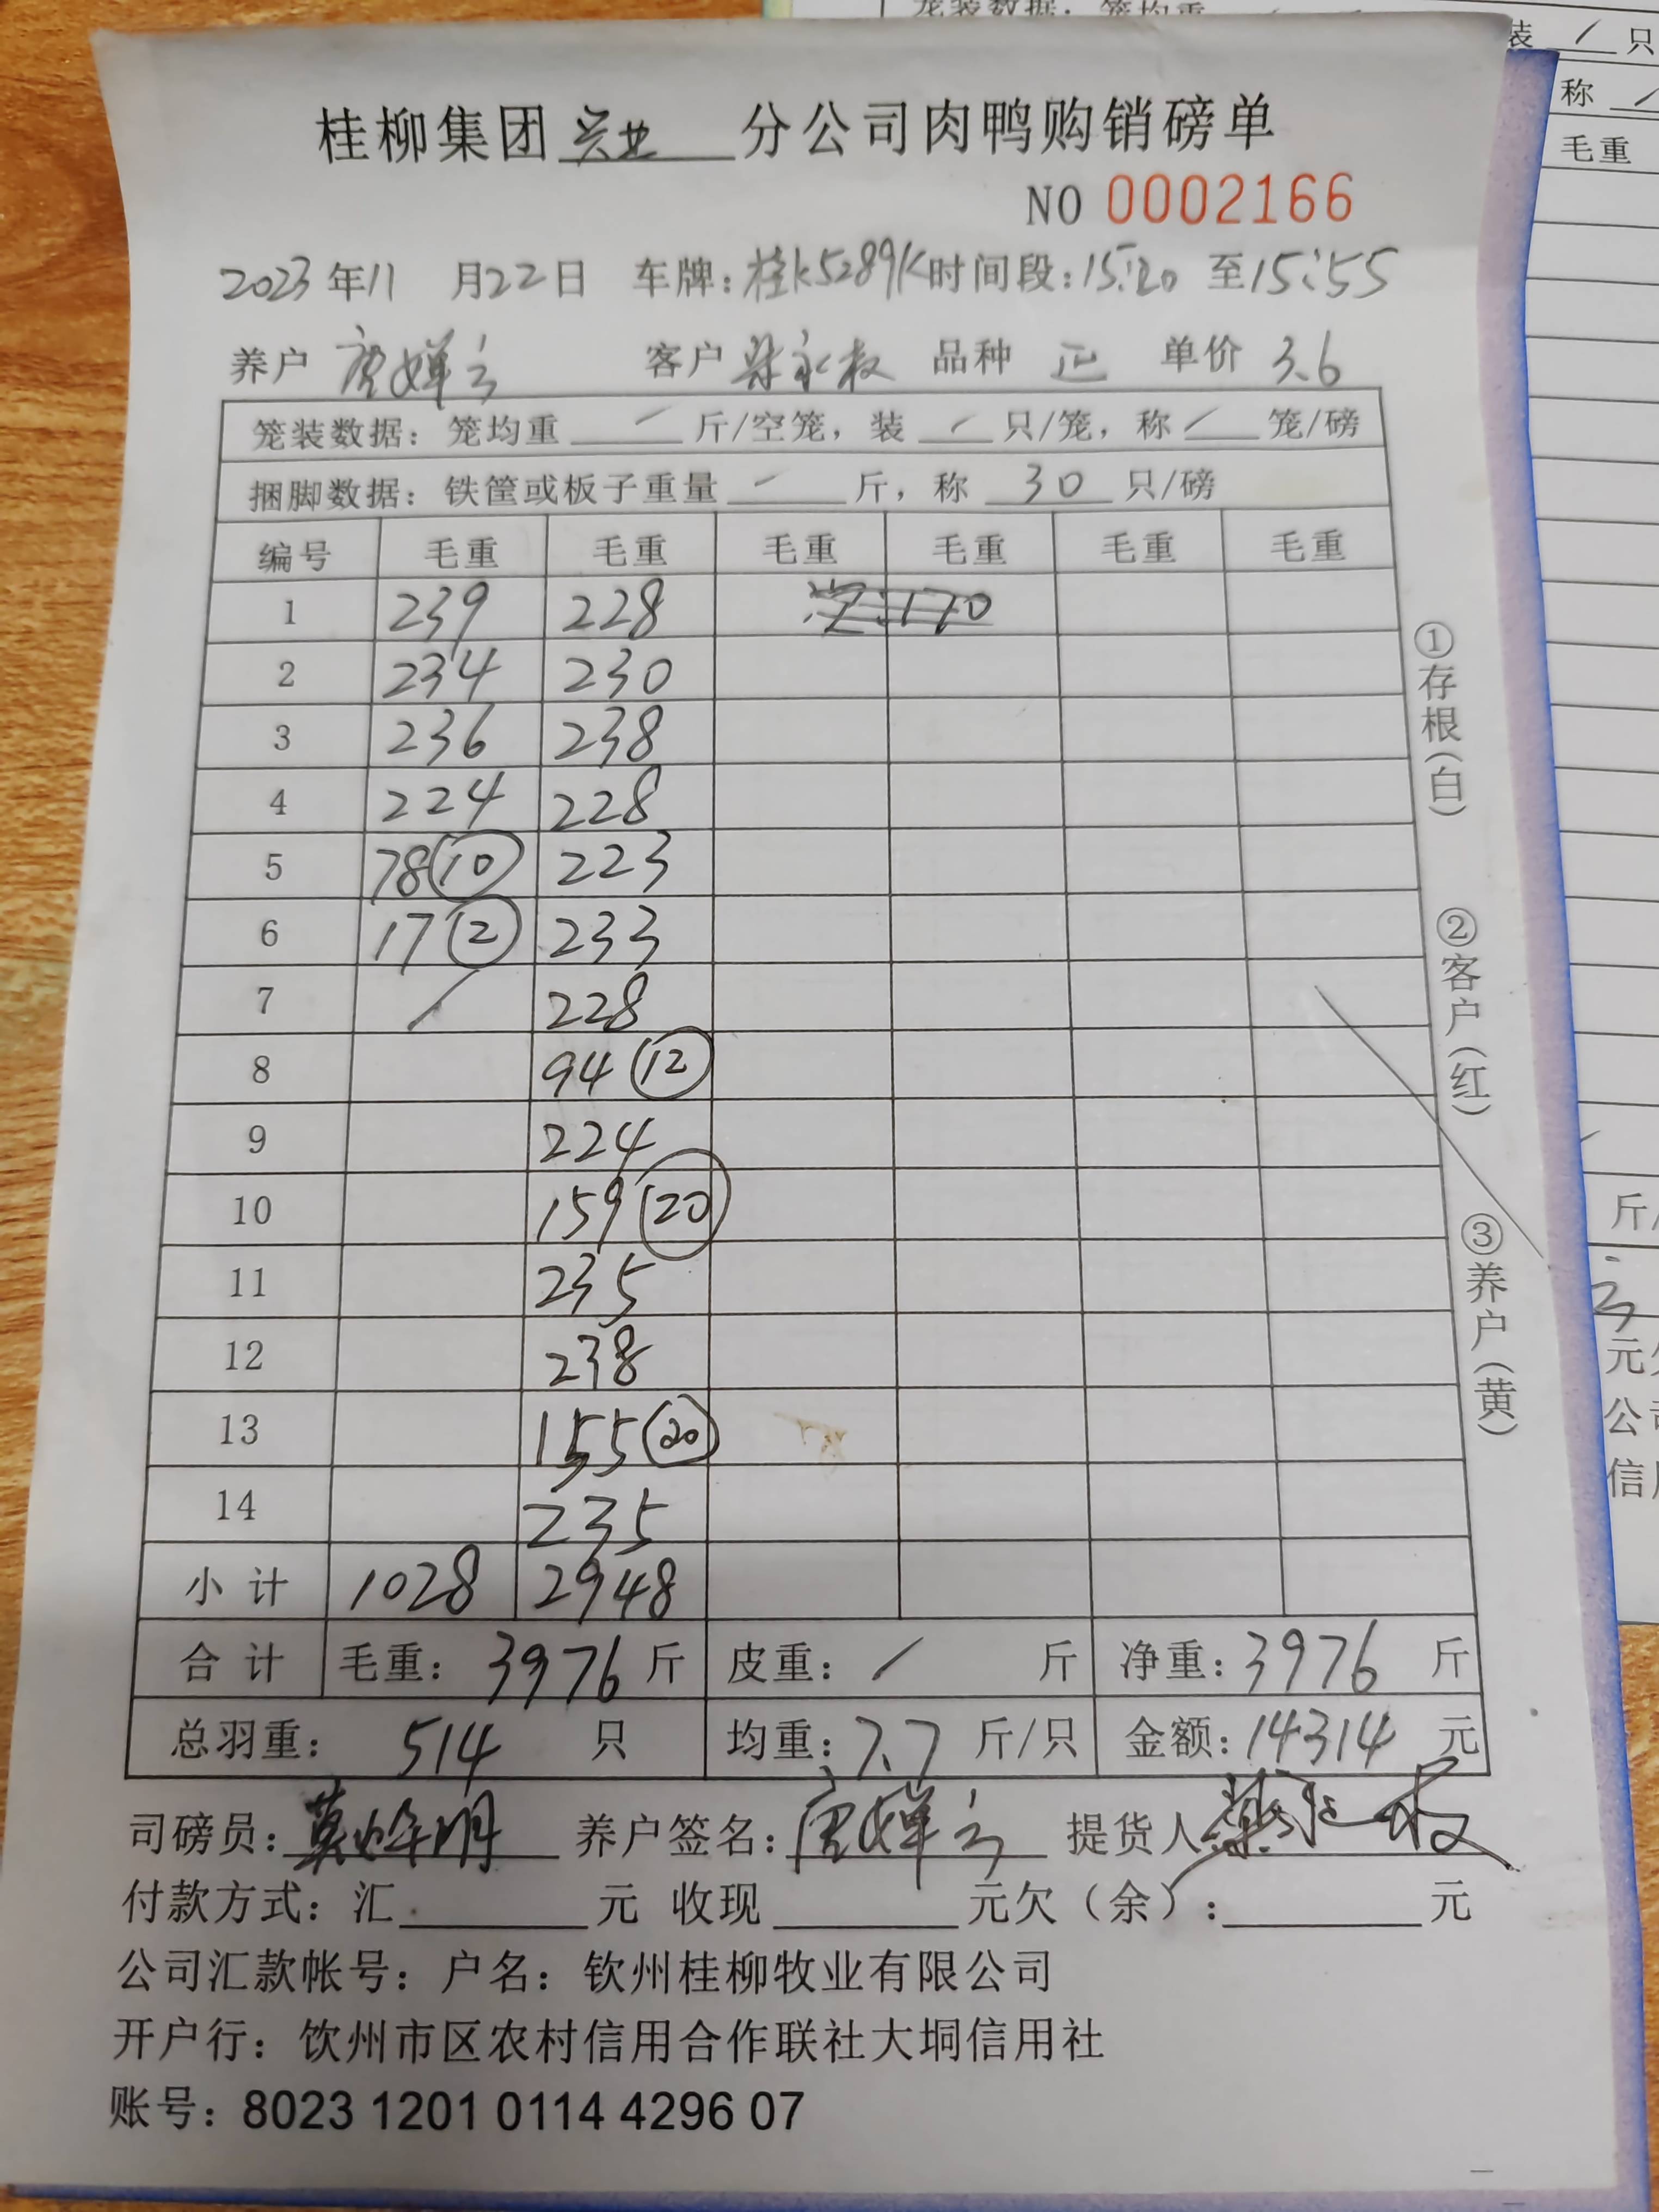 桂柳集团 兴业 分公司肉鸭购销磅单
NO 0002166
2023年11月22日 车牌:桂K5289K 时间段:15:20 至15:55
养户 唐婵云 客户 梁永权 品种 正 单价 3.6
笼装数据:笼均重 / 斤/空笼,装 / 只/笼,称 / 笼/磅
捆脚数据:铁筐或板子重量 / 斤,称 30 只/磅
编号 毛重 毛重 毛重 毛重 毛重 毛重
1 239 228 空:170
2 234 230
3 236 238
4 224 228
5 78⑩ 223
6 17② 233
7 / 228
8 94⑫
9 224
10 159⑳
11 235
12 238
13 155⑳
14 235
小计 1028 2948
合计 毛重:3976斤 皮重:/ 斤 净重:3976 斤
总羽重:514 只 均重:7.7 斤/只 金额:14314 元
司磅员: 养户签名:唐婵云 提货人:
付款方式:汇 元 收现 元欠(余): 元
公司汇款帐号:户名:钦州桂柳牧业有限公司
开户行:饮州市区农村信用合作联社大垌信用社
账号:8023 1201 0114 4296 07
①存根(白)
②客户(红)
③养户(黄)
装 / 只
称 /
毛重
斤/
公司